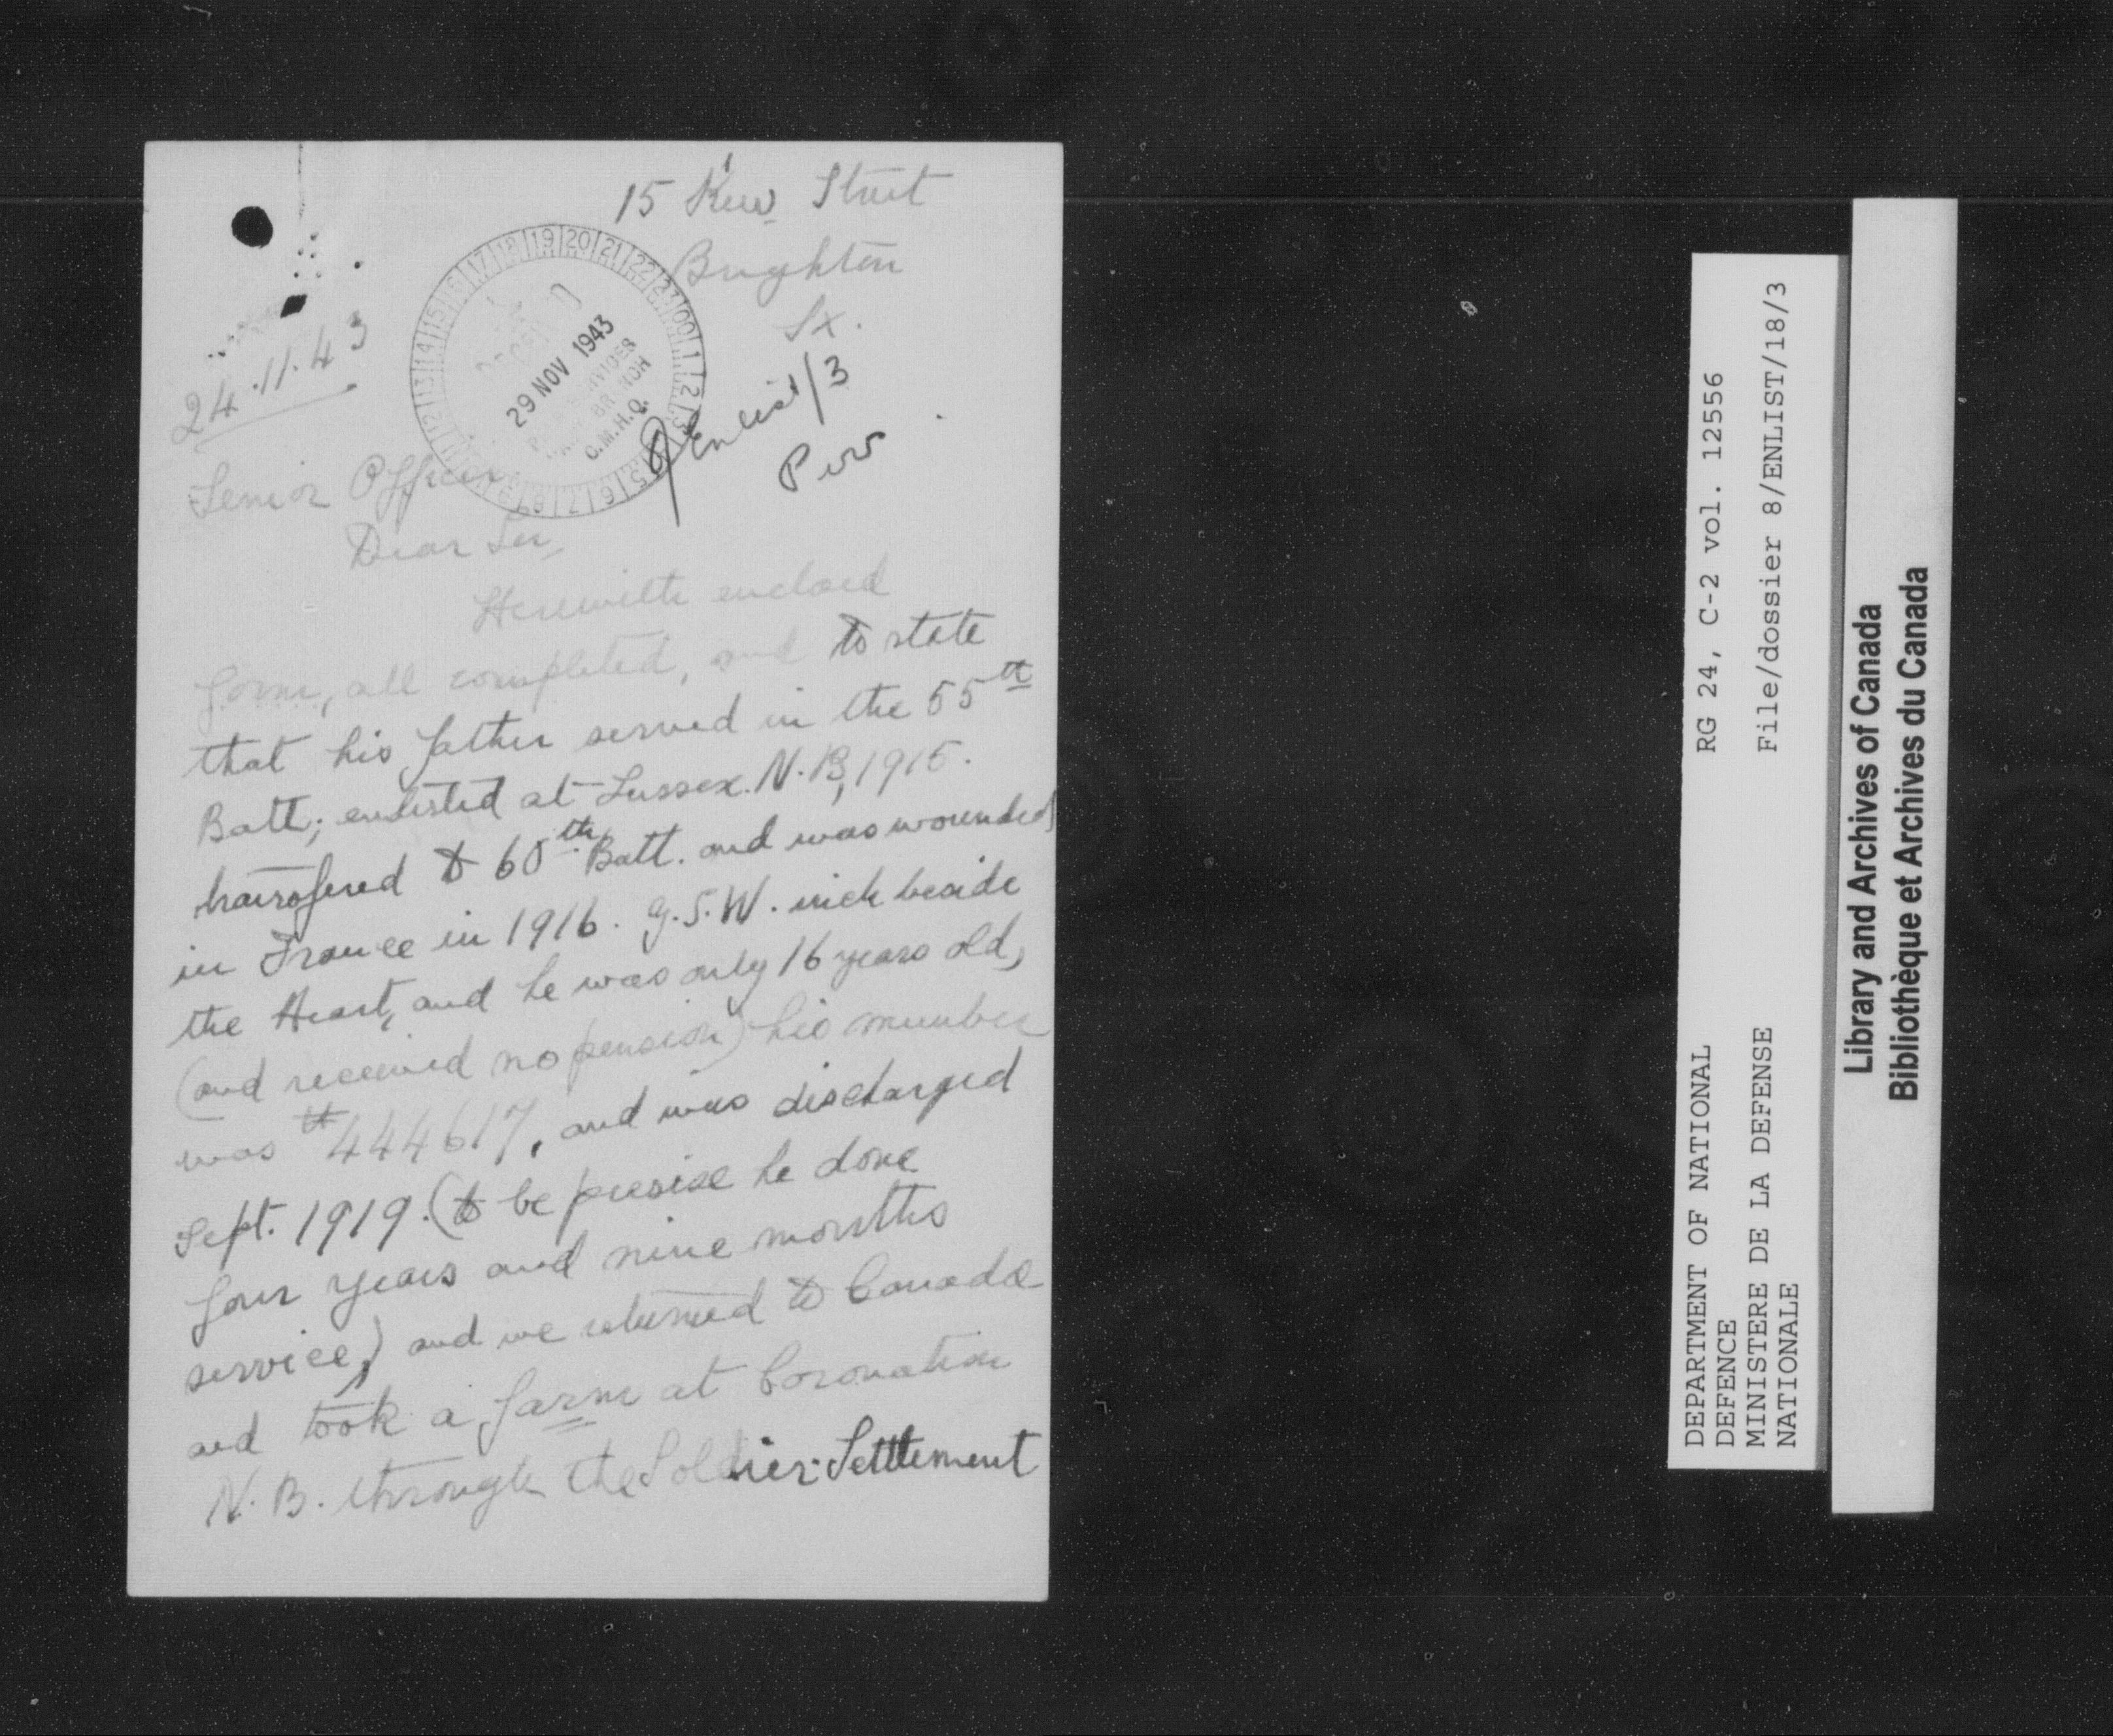 15 Kew Street
Brighton
Sx.
24.11.43
29 NOV 1943
C.M.H.Q.
Enlist/3
Senior Officer
Dear Sir,
Herewith enclosed
form, all completed, and to state
that his father served in the 55th
Batt; enlisted at Sussex. N.B, 1915.
transfered to 60th Batt. and was wounded
in France in 1916. G.S.W. inch beside
the Heart, and he was only 16 years old,
(and received no pension) his number
was #444617, and was discharged
Sept. 1919. (to be presise he done
four years and nine months
service,) and we returned to Canada
and took a farm at Coronation
N.B. through the Soldier Settlement
RG 24, C-2 vol. 12556
File/dossier 8/ENLIST/18/3
DEPARTMENT OF NATIONAL
DEFENCE
MINISTERE DE LA DEFENSE
NATIONALE
Library and Archives of Canada
Bibliothèque et Archives du Canada